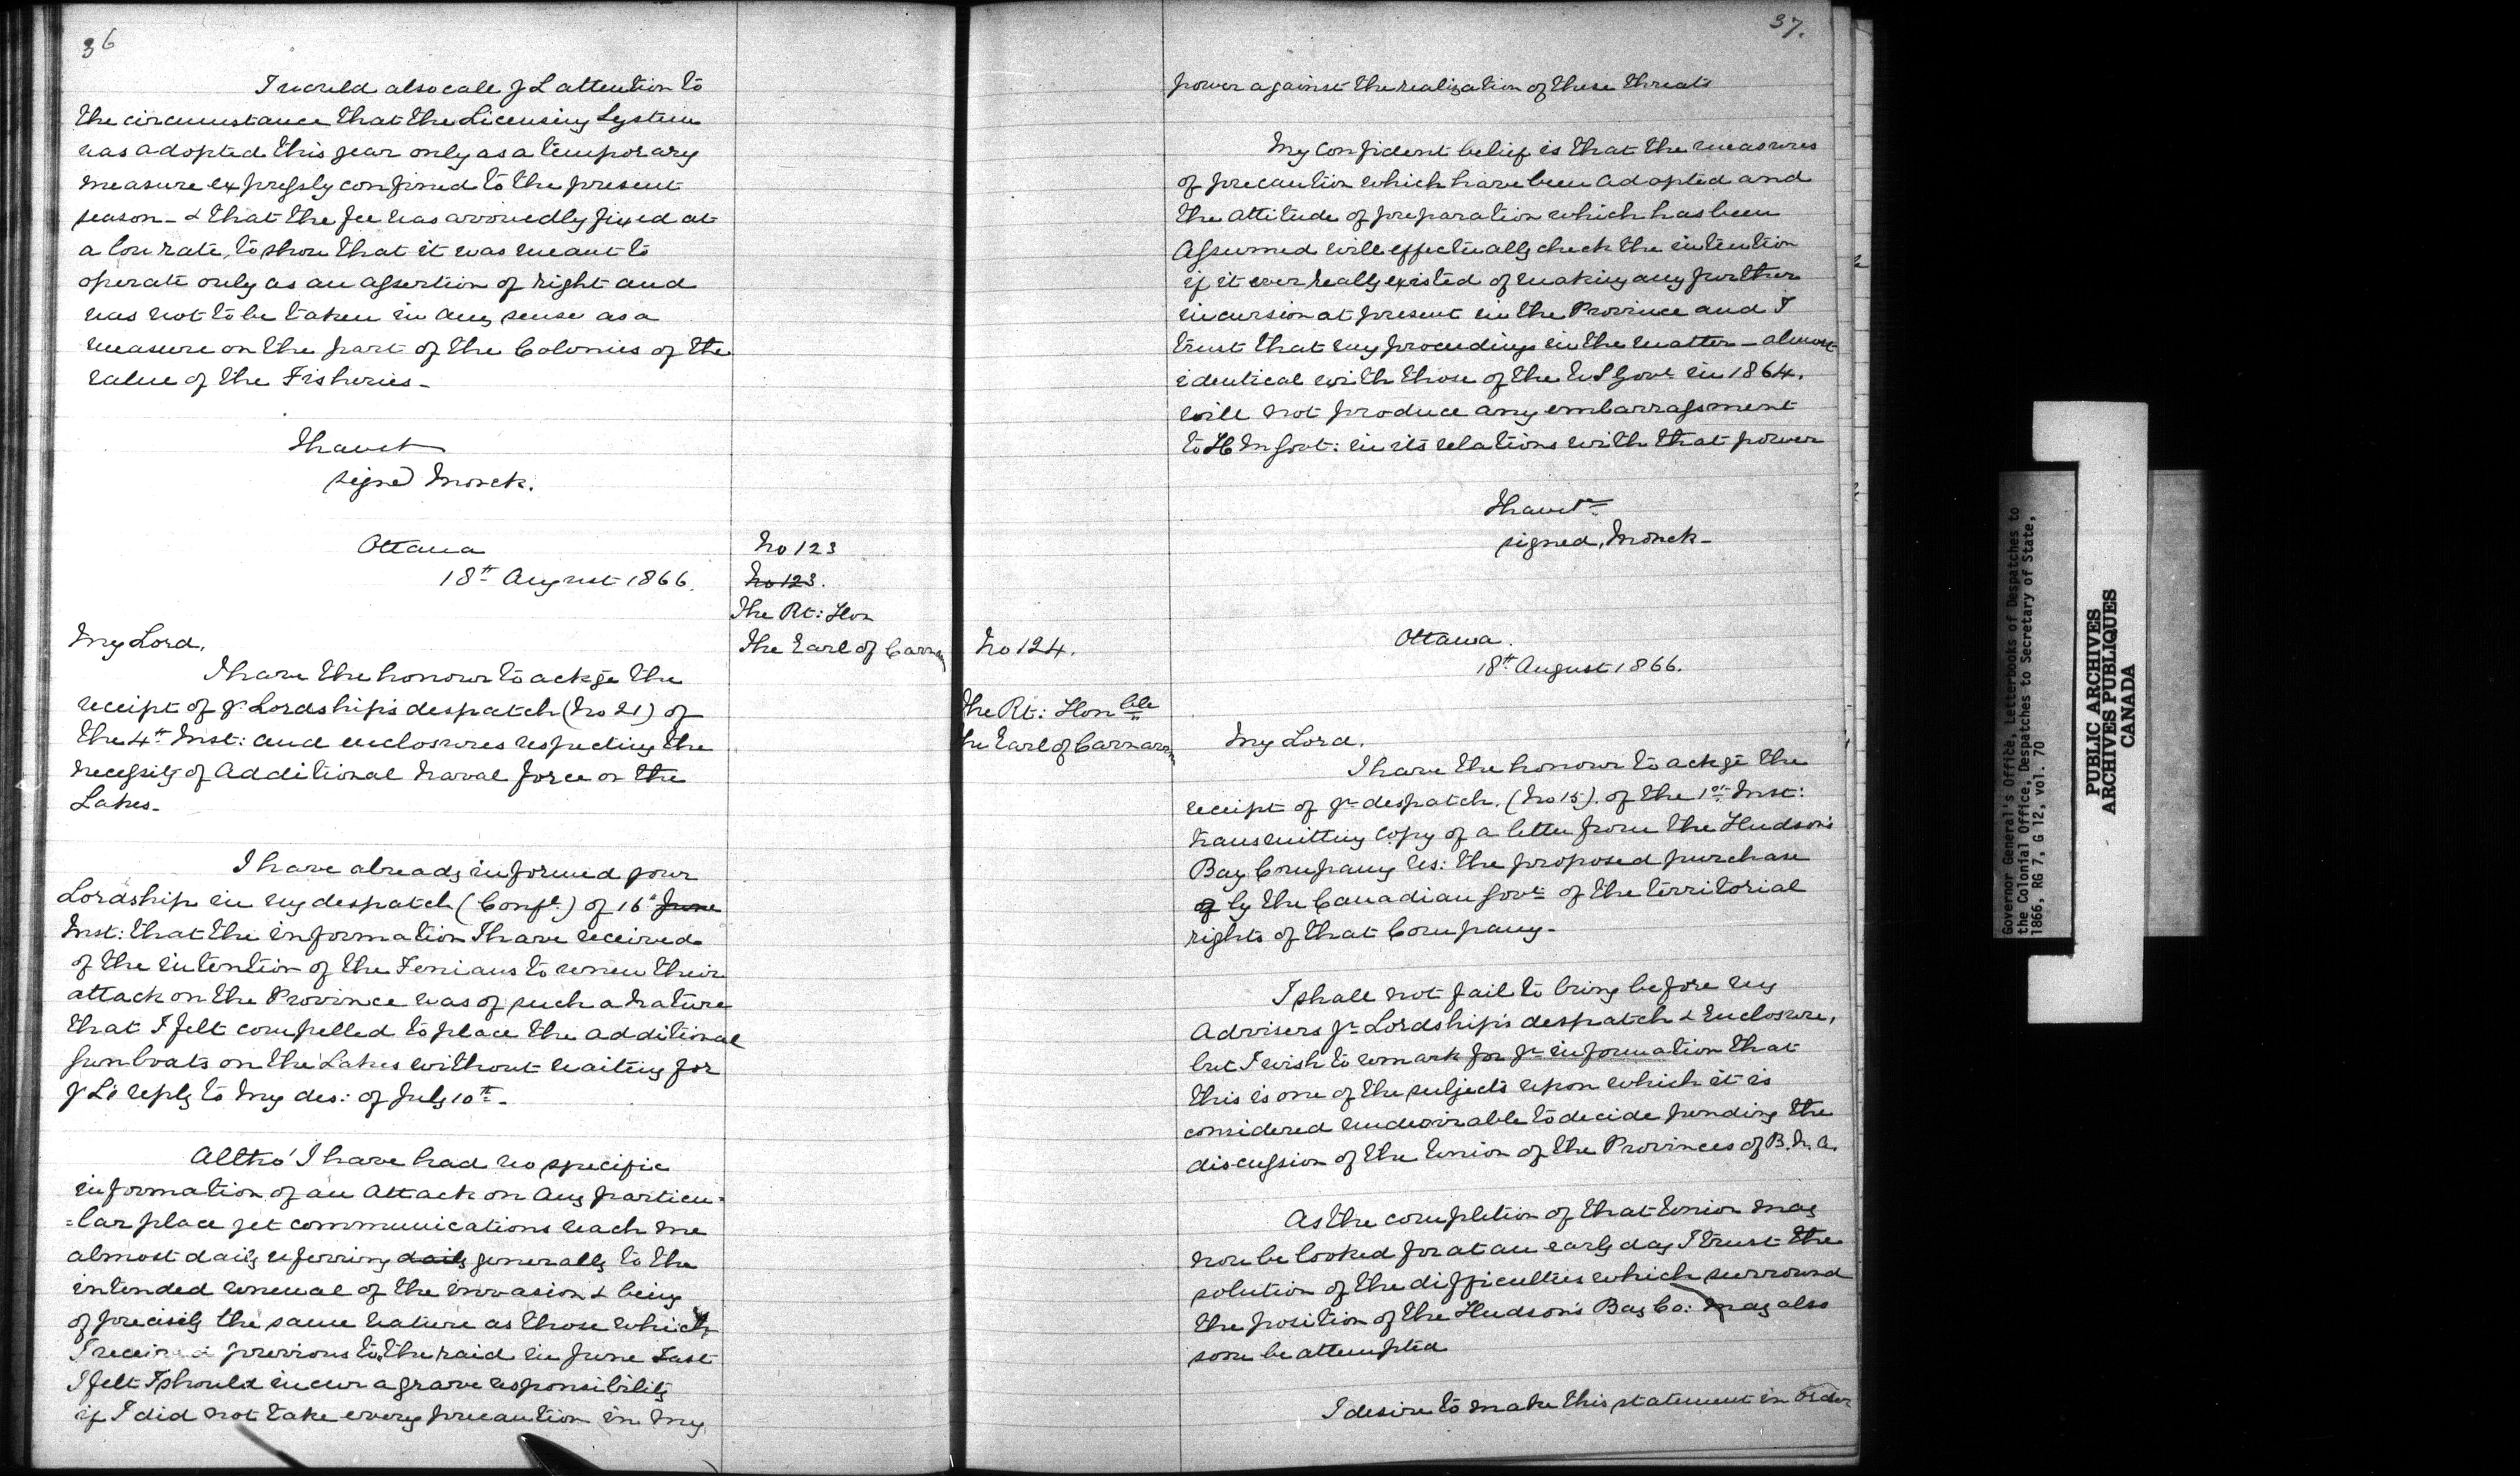 36
I would also call yr L attention to
the circumstance that the Licensing System
was adopted this year only as a temporary
measure expressly confined to the present
season - & that the fee was avowedly fixed at
a low rate, to show that it was meant to
operate only as an assertion of right and
was not to be taken in any sense as a
measure on the part of the Colonies of the
value of the Fisheries -
I have &c
signed Monck.
Ottawa
18th August 1866.
No 123
No 123.
The Rt: Hon
The Earl of Carnarvon
My Lord,
I have the honour to ackge the
receipt of yr Lordship's despatch (No 21) of
the 4th Inst: and enclosures respecting the
necessity of Additional Naval force on the
Lakes -
I have already informed your
Lordship in my despatch (Confl.) of 16th June
Inst: that the information I have received
of the intention of the Fenians to renew their
attack on the Province was of such a nature
that I felt compelled to place the additional
Gunboats on the Lakes without waiting for
yr L's reply to my des: of July 10th -
Altho' I have had no specific
information of an Attack on Any particu-
=lar place yet communications reach me
almost daily referring daily generally to the
intended renewal of the invasion & being
of precisely the same nature as those which
I received previous to the raid in June Last
I felt I should incur a grave responsibility
if I did not take every precaution in my
37.
power against the realization of these threats
My confident belief is that the measures
of precaution which have been adopted and
the attitude of preparation which has been
Assumed will effectually check the intention
if it ever really existed of making any further
incursion at present in the Province and I
trust that my proceedings in the matter - almost
identical with those of the U S Govt in 1864.
will not produce any embarrassment
to H M Govt: in its relations with that power
I have &c
signed, Monck -
No 124.
Ottawa.
18th August 1866.
The Rt: Honble
The Earl of Carnarvon
My Lord,
I have the honour to ackge the
receipt of yr despatch, (No 15). of the 1st Inst:
transmitting Copy of a letter from the Hudson's
Bay Company res: the proposed purchase
of by the Canadian Govt of the territorial
rights of that Company -
I shall not fail to bring before my
Advisers yr Lordship's despatch & Enclosure,
but I wish to remark for yr information that
this is one of the subjects upon which it is
considered undesirable to decide pending the
discussion of the Union of the Provinces of B. N. A.
As the completion of that Union may
now be looked for at an early day I trust the
solution of the difficulties which surround
the position of the Hudson's Bay Co: may also
soon be attempted
I desire to make this statement in order
Governor General's Office, Letterbooks of Despatches to
the Colonial Office, Despatches to Secretary of State,
1866, RG 7, G 12, vol. 70
PUBLIC ARCHIVES
ARCHIVES PUBLIQUES
CANADA